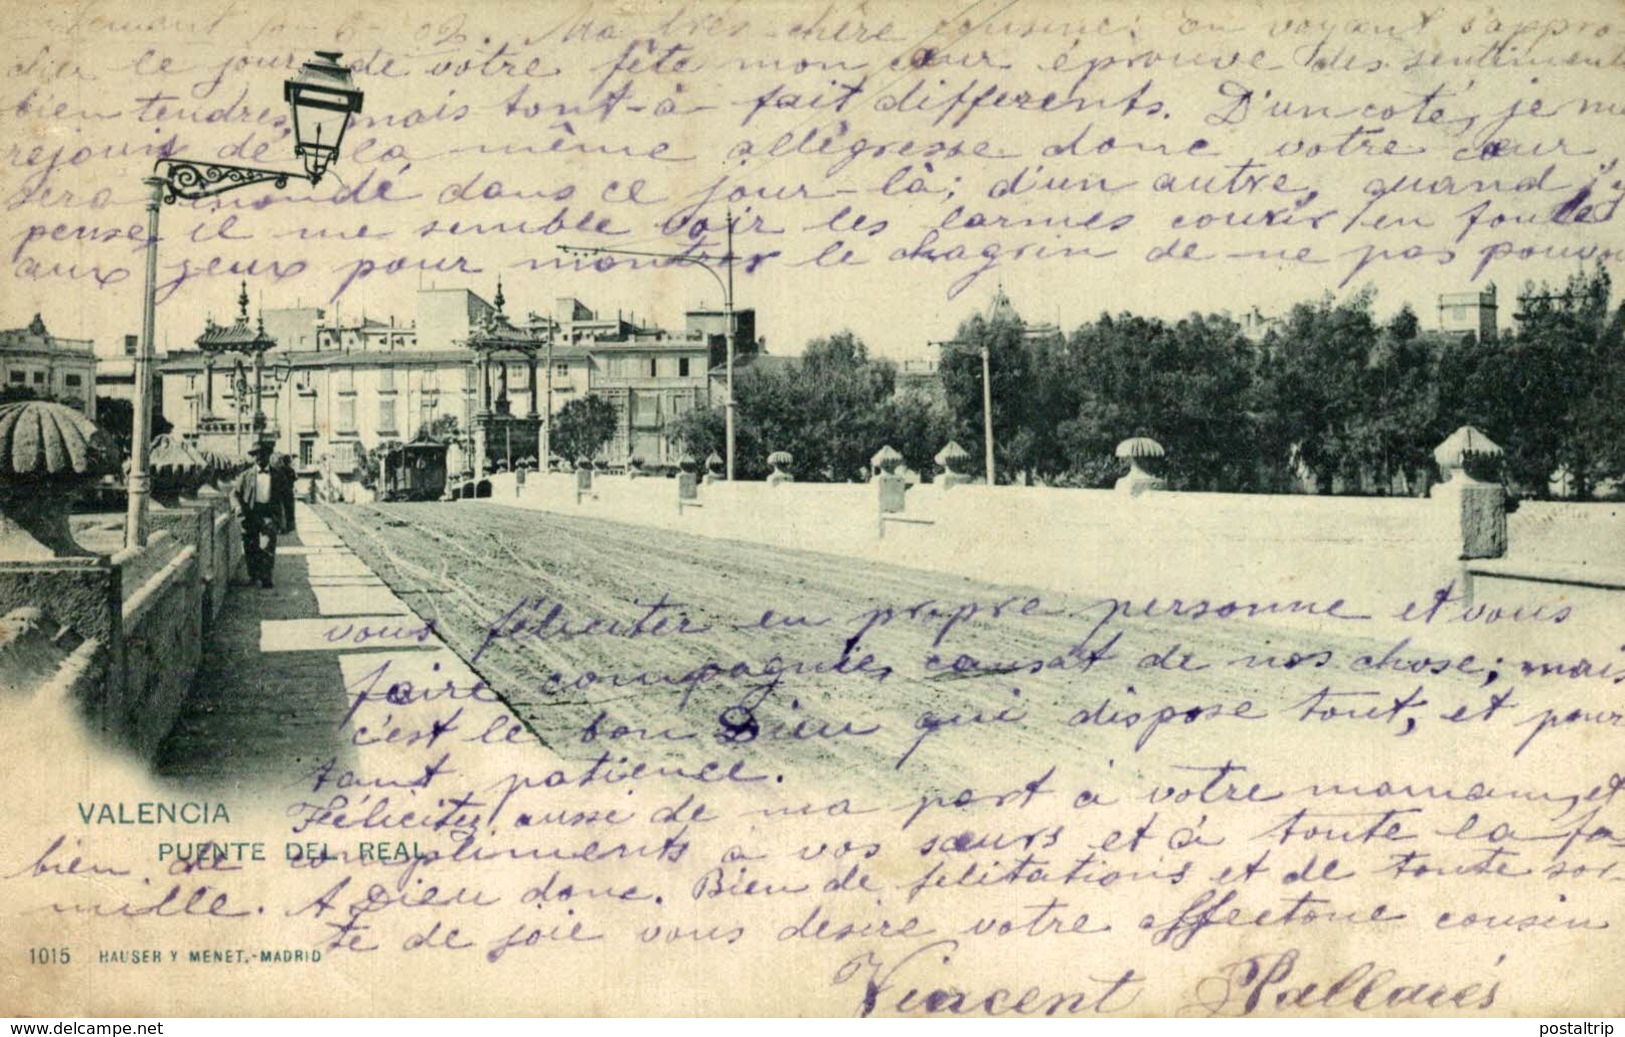 6-02. Ma très chère cousine: en voyant s'appro-
cher le jour de vôtre fête mon cœur éprouve des sentiments
bien tendres, mais tout-à-fait differents. D'un coté, je me
rejouis de la même allégresse donc votre cœur
sera inondé dans ce jour-là; d'un autre, quand j'y
pense, il me semble voir les larmes courir en foule
aux yeux pour montrer le chagrin de ne pas pouvoir
vous féliciter en propre personne et vous
faire compagnie, causat de nos chose; mais
c'est le bon Dieu qui dispose tout, et pour
tant patience.
Féliciter aussi de ma part à vôtre maman, et
bien de compliments à vos sœurs et à toute la fa-
mille. A Dieu donc. Bien de felitations et de toute sor-
te de joie vous desire votre affectone cousin
Vincent Pallarés
VALENCIA
PUENTE DEL REAL
1015 HAUSER Y MENET.-MADRID
https://www.delcampe.net
postaltrip